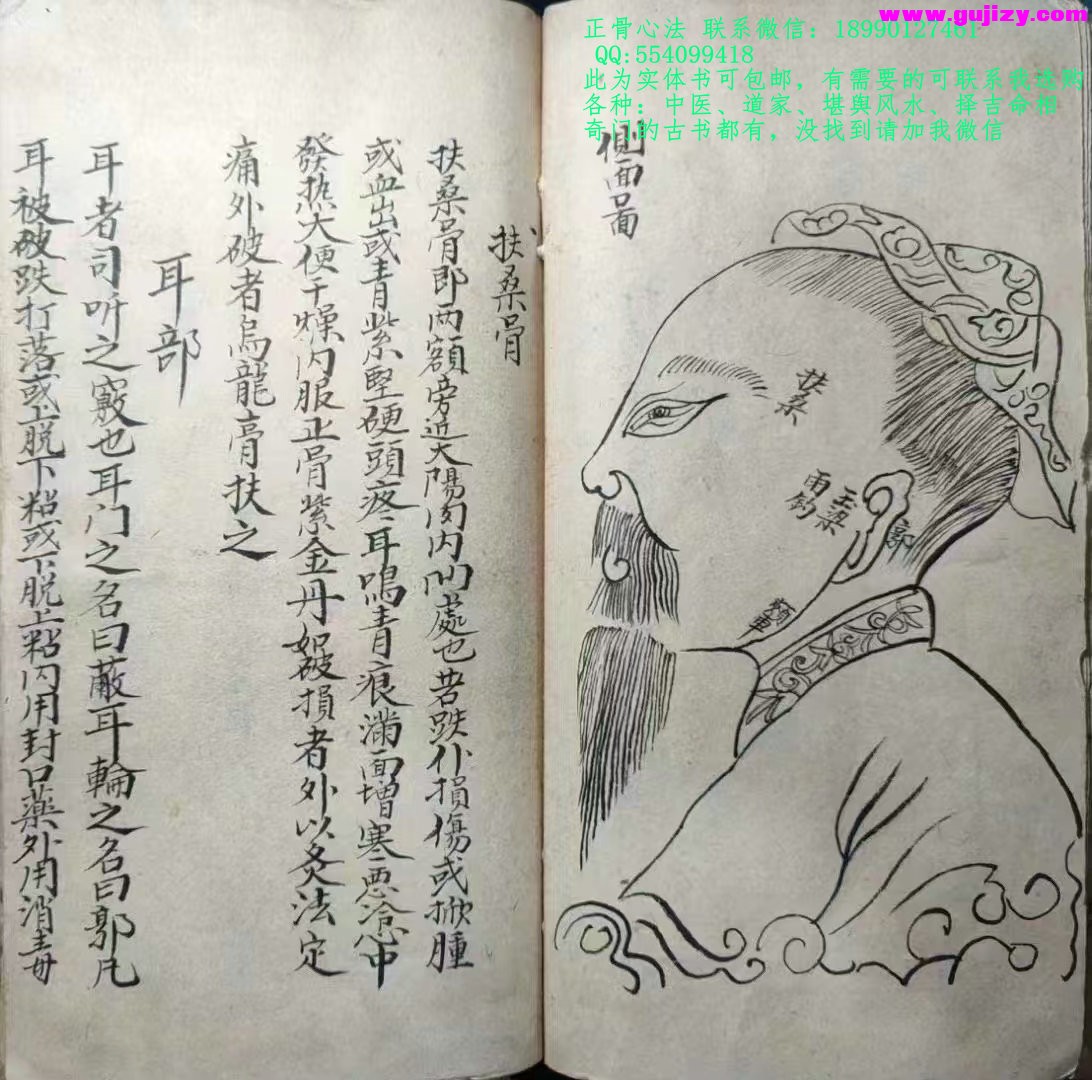 www.gujizy.com
正骨心法 联系微信：18990127461
QQ:554099418
此为实体书可包邮，有需要的可联系我选购
各种：中医、道家、堪舆风水、择吉命相
奇门的古书都有，没找到请加我微信
側面啚
扶桑
玉梁
两钓
郭
頬車
扶桑骨
扶桑骨即两額旁近大陽肉内凹處也若跌仆損傷或掀腫
或血出或青紫堅硬頭疼耳鳴青痕滿面增寒恶冷心中
發热大便干燥内服正骨紫金丹如破損者外以灸法定
痛外破者烏龍膏扶之
耳部
耳者司听之竅也耳门之名曰蔽耳輪之名曰郭凡
耳被破跌打落或上脱下粘或下脱上粘内用封口藥外用消毒